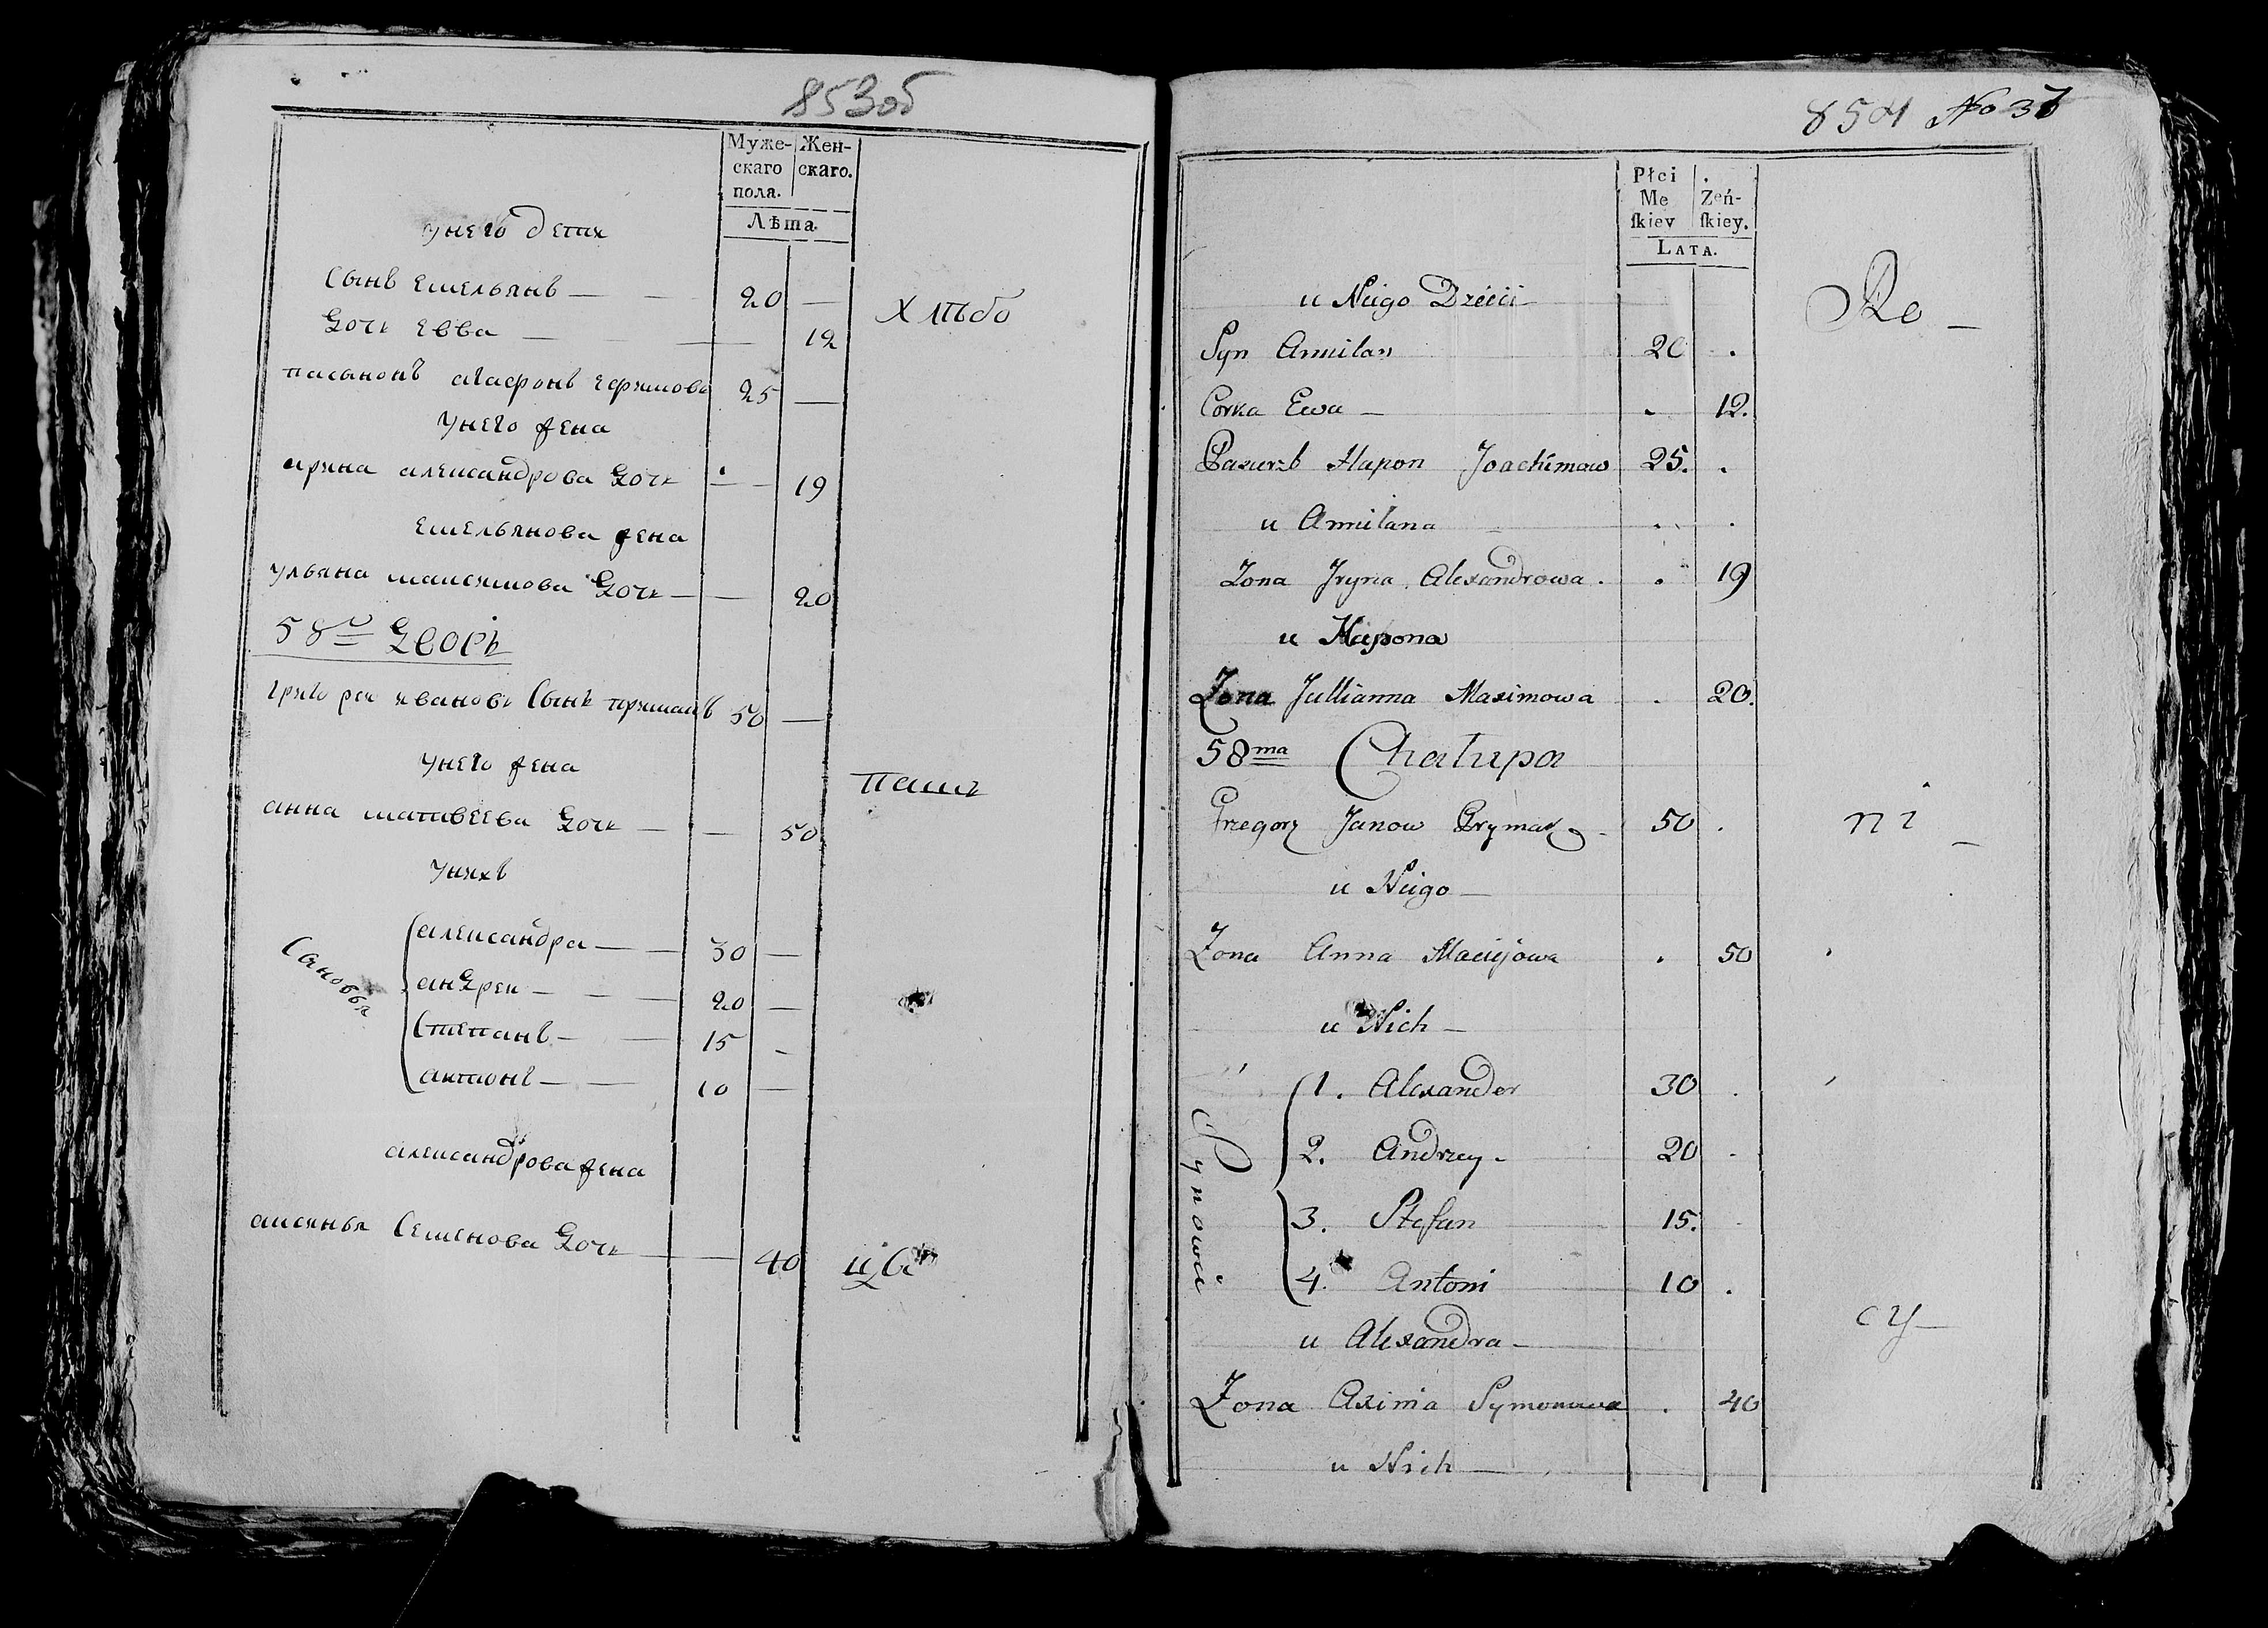 853об
Муже-
скаго
пола.
Жен-
скаго.
Лѣта
унего дети
Сынъ емельянъ — — 20 —
Дочь евва — — 12
хлѣбо
пасынокъ агафонъ ефимовъ 25 —
унего жена
ирина александрова дочь — — 19
емельянова жена
ульяна максимова дочь — — 20
58й Дворъ
григореи ивановъ Сынъ примакъ 50 —
унего жена
анна матвеева дочь — — 50
пашъ
унихъ
Сановья
александра — — 30 —
андреи — — — 20 —
Степанъ — — 15 -
антонъ — — 10 —
александрова жена
аксинья Семенова дочь — — 40
цы
854 No 37
Płci
Me
ſkiey
Żeń-
ſkiey.
LATA.
u Niego Dzieci
Re —
Syn Amilan 20 .
Corka Ewa — . 12.
Pasierzb Hapon Joachimow 25. .
u Amilana . .
Zona Jryna Alexandrowa . . 19
u Hapona
Zona Jullianna Maximowa . 20.
58ma Chałupa
Grzegorz Janow Prymak 50 .
ni —
u Niego —
Zona Anna Maciejowa . 50
u Nich —
Synowie
1. Alexander 30 .
2. Andrzey - 20 .
3. Stefan 15.
4. Antoni 10 .
u Alexandra —
cy —
Zona Axinia Symonowa . 40
u Nich —